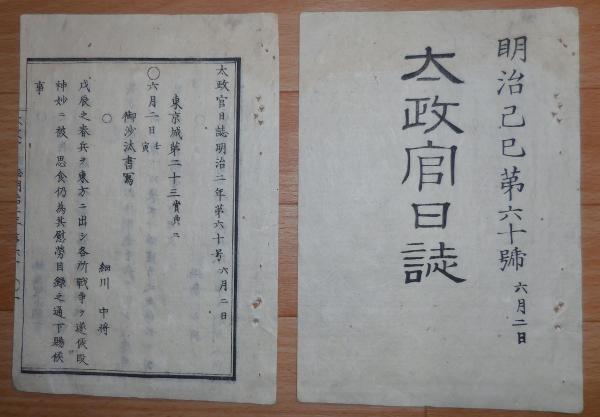 明治己巳第六十號 六月二日
太政官日誌
太政官日誌明治二年第六十號 六月二日
東京城第二十三 賞典ニ
〇六月二日 壬寅
御沙汰書寫
〇
細川 中将
戊辰之春兵ヲ東方ニ出シ各所戦争ヲ遂候段
神妙ニ被 思食仍為其慰勞目録之通下賜候
事